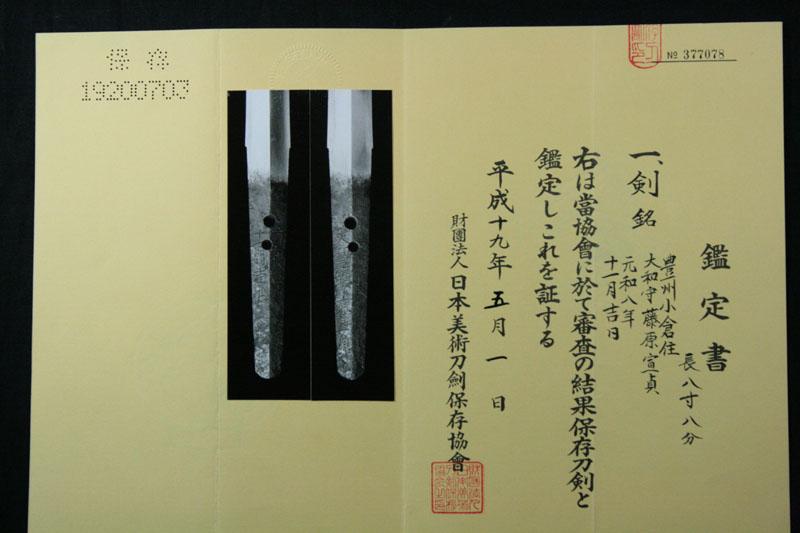 保存
19200703
№ 377078
鑑定書
長八寸八分
一、剣 銘
豊州小倉住
大和守藤原宣貞
元和八年
十一月吉日
右は當協會に於て審査の結果保存刀剣と
鑑定しこれを証する
平成十九年五月一日
財團法人日本美術刀劍保存協會